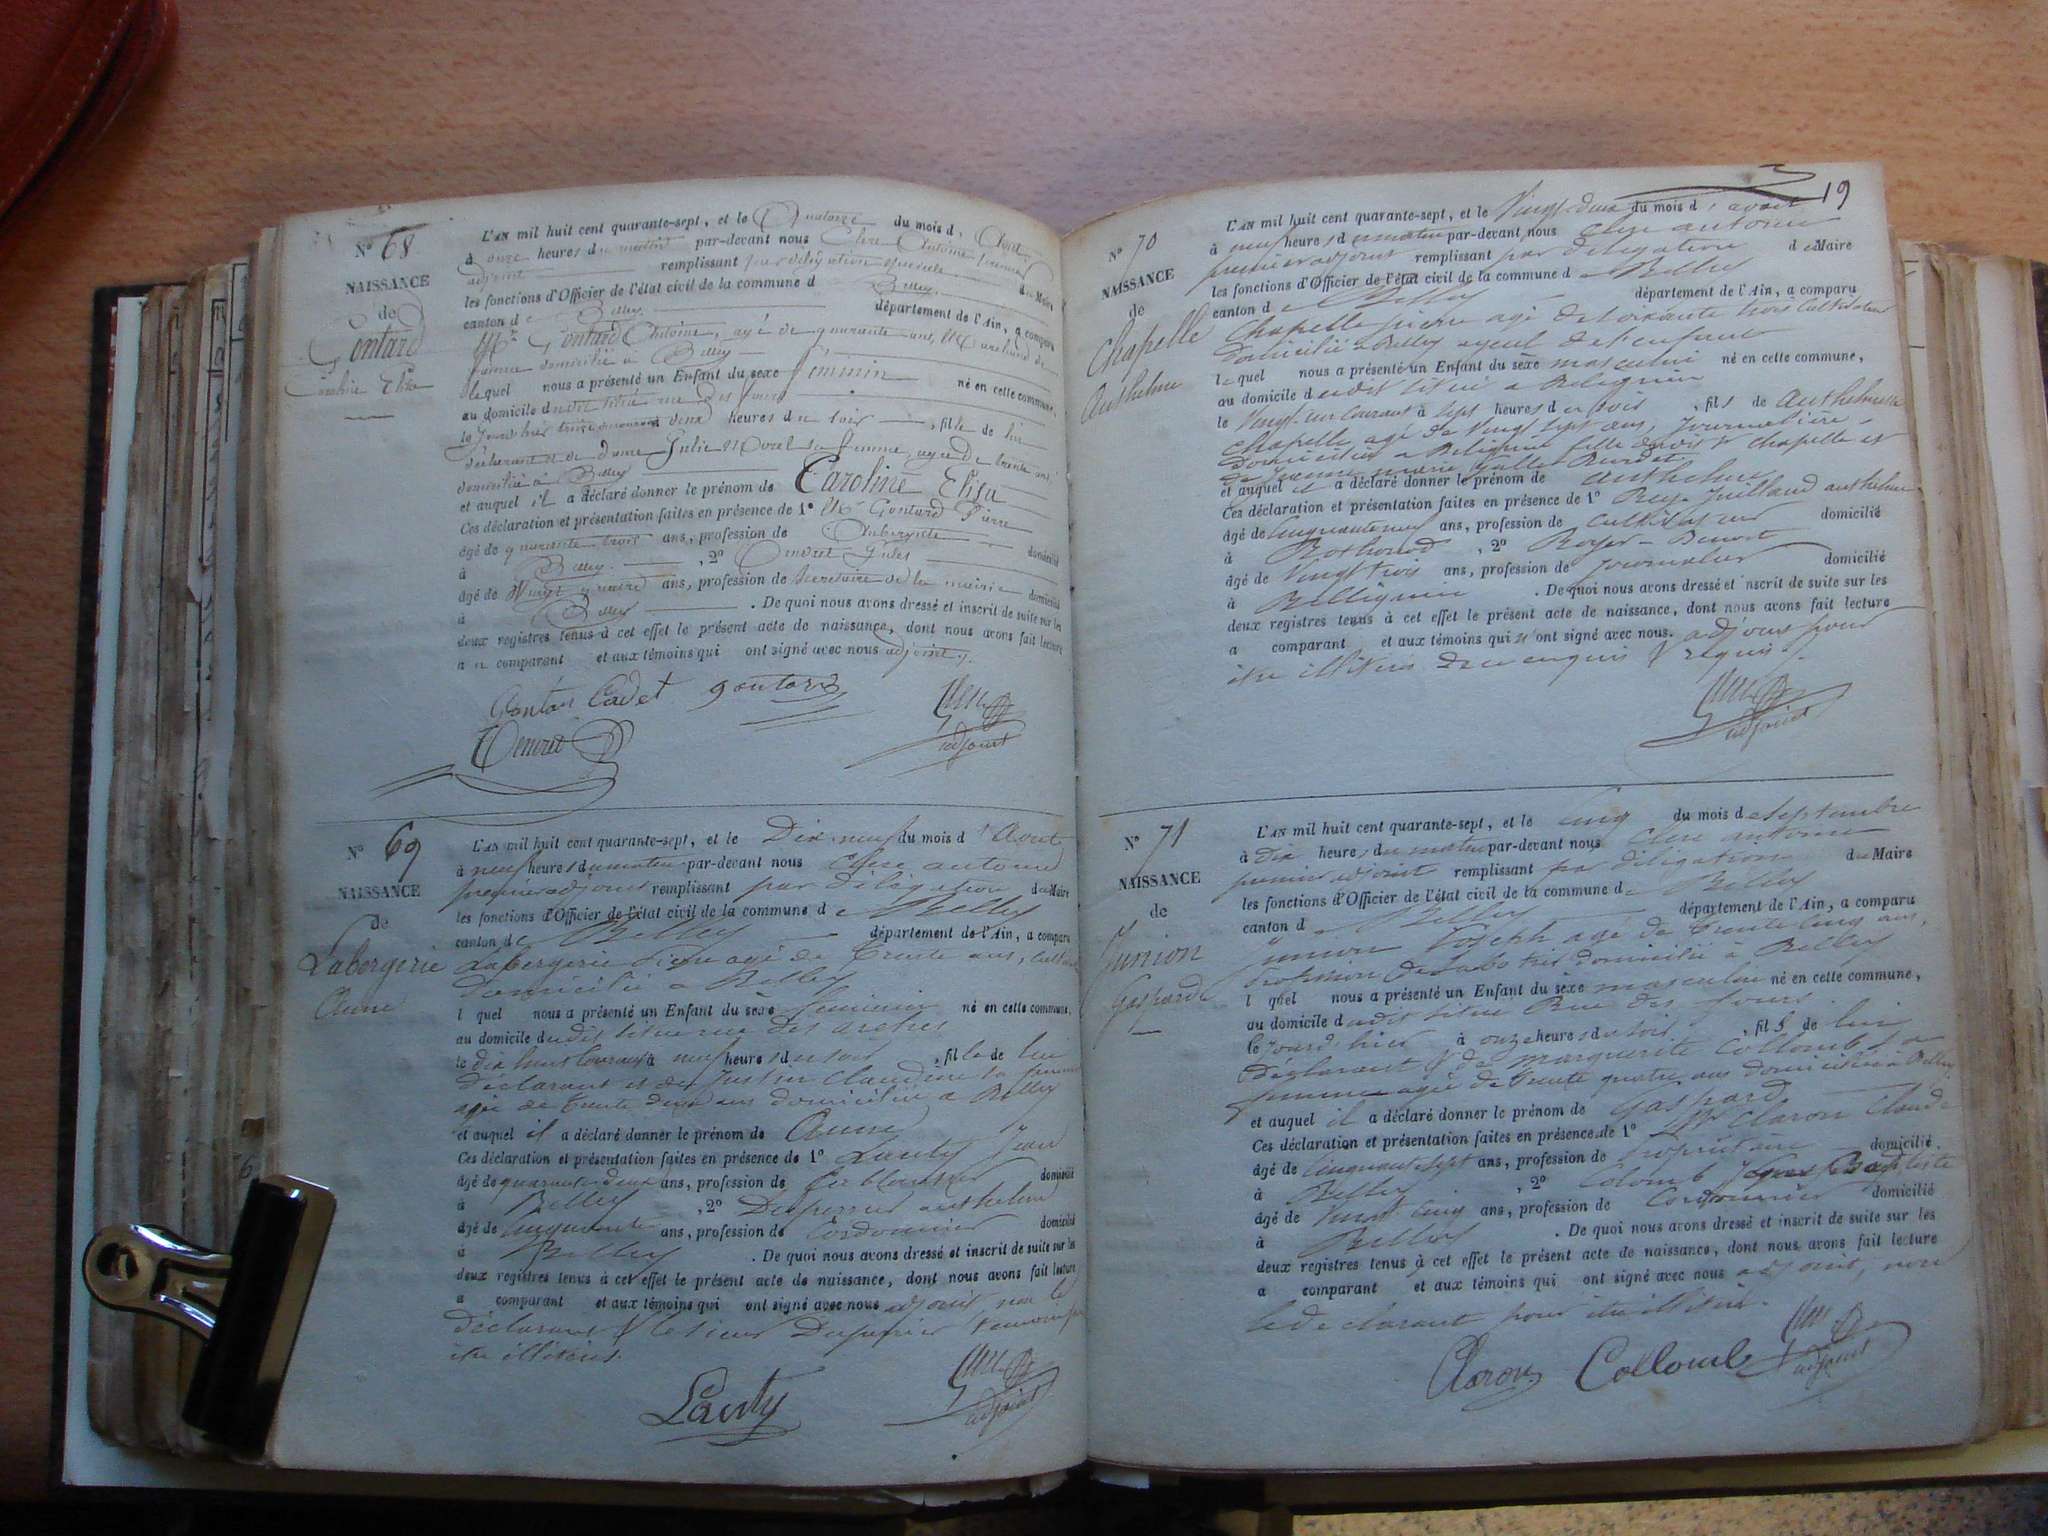 N° 68
NAISSANCE
de
Gontard
Caroline Elisa
L'AN mil huit cent quarante-sept, et le Quatorze du mois d' Aout
à onze heures du matin par-devant nous Clerc Antoine premier
adjoint remplissant par délégation spéciale du Maire
les fonctions d'Officier de l'état civil de la commune de Belley
canton de Belley département de l'Ain, a comparu
Mr Gontard Antoine, agé de quarante ans, Marchand de
domicilié à Belley
lequel nous a présenté un Enfant du sexe féminin né en cette commune,
au domicile dudit situé rue des fours
le jourd'hier treize courant à deux heures du soir, fille de lui
déclarant et de dame Julie Morel sa femme, agée de trente ans,
domiciliée à Belley
et auquel il a déclaré donner le prénom de Caroline Elisa
Ces déclaration et présentation faites en présence de 1° Mr Gontard Pierre
âgé de quarante trois ans, profession de Aubergiste domicilié
à Belley. , 2° Jules
âgé de Vingt quatre ans, profession de Secrétaire de la mairie domicilié
à Belley . De quoi nous avons dressé et inscrit de suite sur les
deux registres tenus à cet effet le présent acte de naissance, dont nous avons fait lecture
au comparant et aux témoins qui ont signé avec nous adjoint
Gontar Cadet gontard
adjoint
N° 69
NAISSANCE
de
Labergerie
Anne
L'AN mil huit cent quarante-sept, et le Dix neuf du mois d' Aout
à neuf heures du matin par-devant nous Clerc antoine
premier adjoint remplissant par délégation du Maire
les fonctions d'Officier de l'état civil de la commune de Belley
canton de Belley département de l'Ain, a comparu
Labergerie agé de Trente ans,
domicilié a Belley
l quel nous a présenté un Enfant du sexe féminin né en cette commune,
au domicile dudit situé rue des arches
le dix huit Courant à neuf heures du soir , fille de lui
déclarant et de Justin Claudine sa femme
agée de trente deux ans domiciliée a Belley
et auquel il a déclaré donner le prénom de Anne
Ces déclaration et présentation faites en présence de 1° Lauty Jean
âgé de quarante deux ans, profession de ferblantier domicilié
à Belley , 2° Desperrier anthelme
âgé de Cinquante ans, profession de Cordonnier domicilié
à Belley . De quoi nous avons dressé et inscrit de suite sur les
deux registres tenus à cet effet le présent acte de naissance, dont nous avons fait lecture
a comparant et aux témoins qui ont signé avec nous adjoint, non le
déclarant & le sieur Desperrier témoin pour
être illitérés.
Lauty
adjoint
19
N° 70
NAISSANCE
de
Chapelle
Anthelme
L'AN mil huit cent quarante-sept, et le Vingt-deux du mois d' aout
à neuf heures du matin par-devant nous Clerc antoine
premier adjoint remplissant par délégation de Maire
les fonctions d'Officier de l'état civil de la commune de Belley
canton de Belley département de l'Ain, a comparu
Chapelle pierre agé de soixante trois Cultivateur
domicilié a Belley ayeul de l'enfant
lequel nous a présenté un Enfant du sexe masculin né en cette commune,
au domicile dudit situé a Belignin
le Vingt-un Courant à sept heures du soir , fils de Anthelmette
Chapelle, agé de Vingt sept ans, Journalière,
domiciliée a Belignin fille dudit Chapelle et
de Jeanne marie
et auquel il a déclaré donner le prénom de anthelme
Ces déclaration et présentation faites en présence de 1° Rey-Juilland anthelme
âgé de Cinquante neuf ans, profession de cultivateur domicilié
à Rothonod , 2° Royer-Benoit
âgé de Vingt trois ans, profession de Journalier domicilié
à Bellignin . De quoi nous avons dressé et inscrit de suite sur les
deux registres tenus à cet effet le présent acte de naissance, dont nous avons fait lecture
a comparant et aux témoins qui n'ont signé avec nous. adjoint pour
être illitérés de ce enquis & requis.
adjoint
N° 71
NAISSANCE
de
Junion
Gaspard
L'AN mil huit cent quarante-sept, et le Cinq du mois de septembre
à Dix heures du matin par-devant nous Clerc antoine
premier adjoint remplissant par délégation du Maire
les fonctions d'Officier de l'état civil de la commune de Belley
canton d Belley département de l'Ain, a comparu
Junion Joseph agé de Trente Cinq ans,
domicilié à Belley
l quel nous a présenté un Enfant du sexe masculin né en cette commune,
au domicile dudit situé Rue des fours
le jourd-hier à onze heures du soir , fils de lui
Déclarant & de marguerite Collomb sa
femme agée de Trente quatre ans domiciliée à Belley
et auquel il a déclaré donner le prénom de Gaspard
Ces déclaration et présentation faites en présence de 1° Mr Claron Claude
âgé de Cinquante sept ans, profession de propriétaire domicilié
à Belley , 2° Colomb Baptiste
âgé de Vingt cinq ans, profession de Cordonnier domicilié
à Belley . De quoi nous avons dressé et inscrit de suite sur les
deux registres tenus à cet effet le présent acte de naissance, dont nous avons fait lecture
a comparant et aux témoins qui ont signé avec nous adjoint, non
le declarant pour être illitéré.
Claron Collomb
adjoint